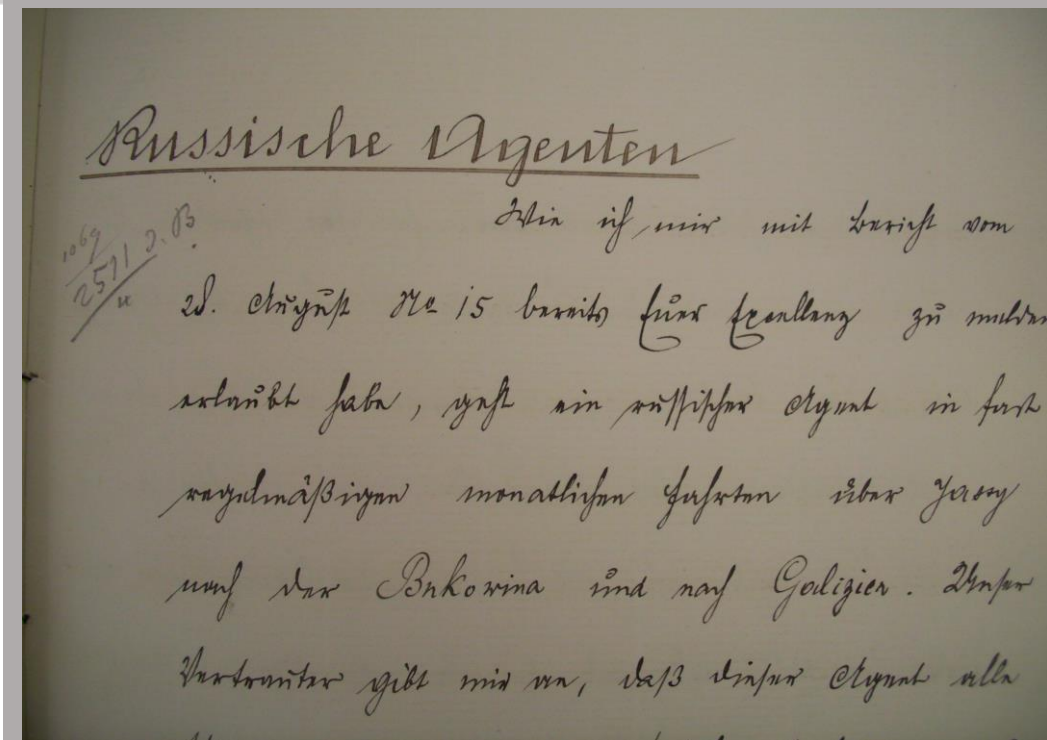 Russische Agenten
1069
2511 J. B.
Wie ich mir mit Bericht vom
28. August No 15 bereits Euer Excellenz zu melden
erlaubt habe, geht ein russischer Agent in fast
regelmäßigen monatlichen Fahrten über Jassy
nach der Bukowina und nach Galizien. Unser
Vertrauter gibt mir an, daß dieser Agent alle